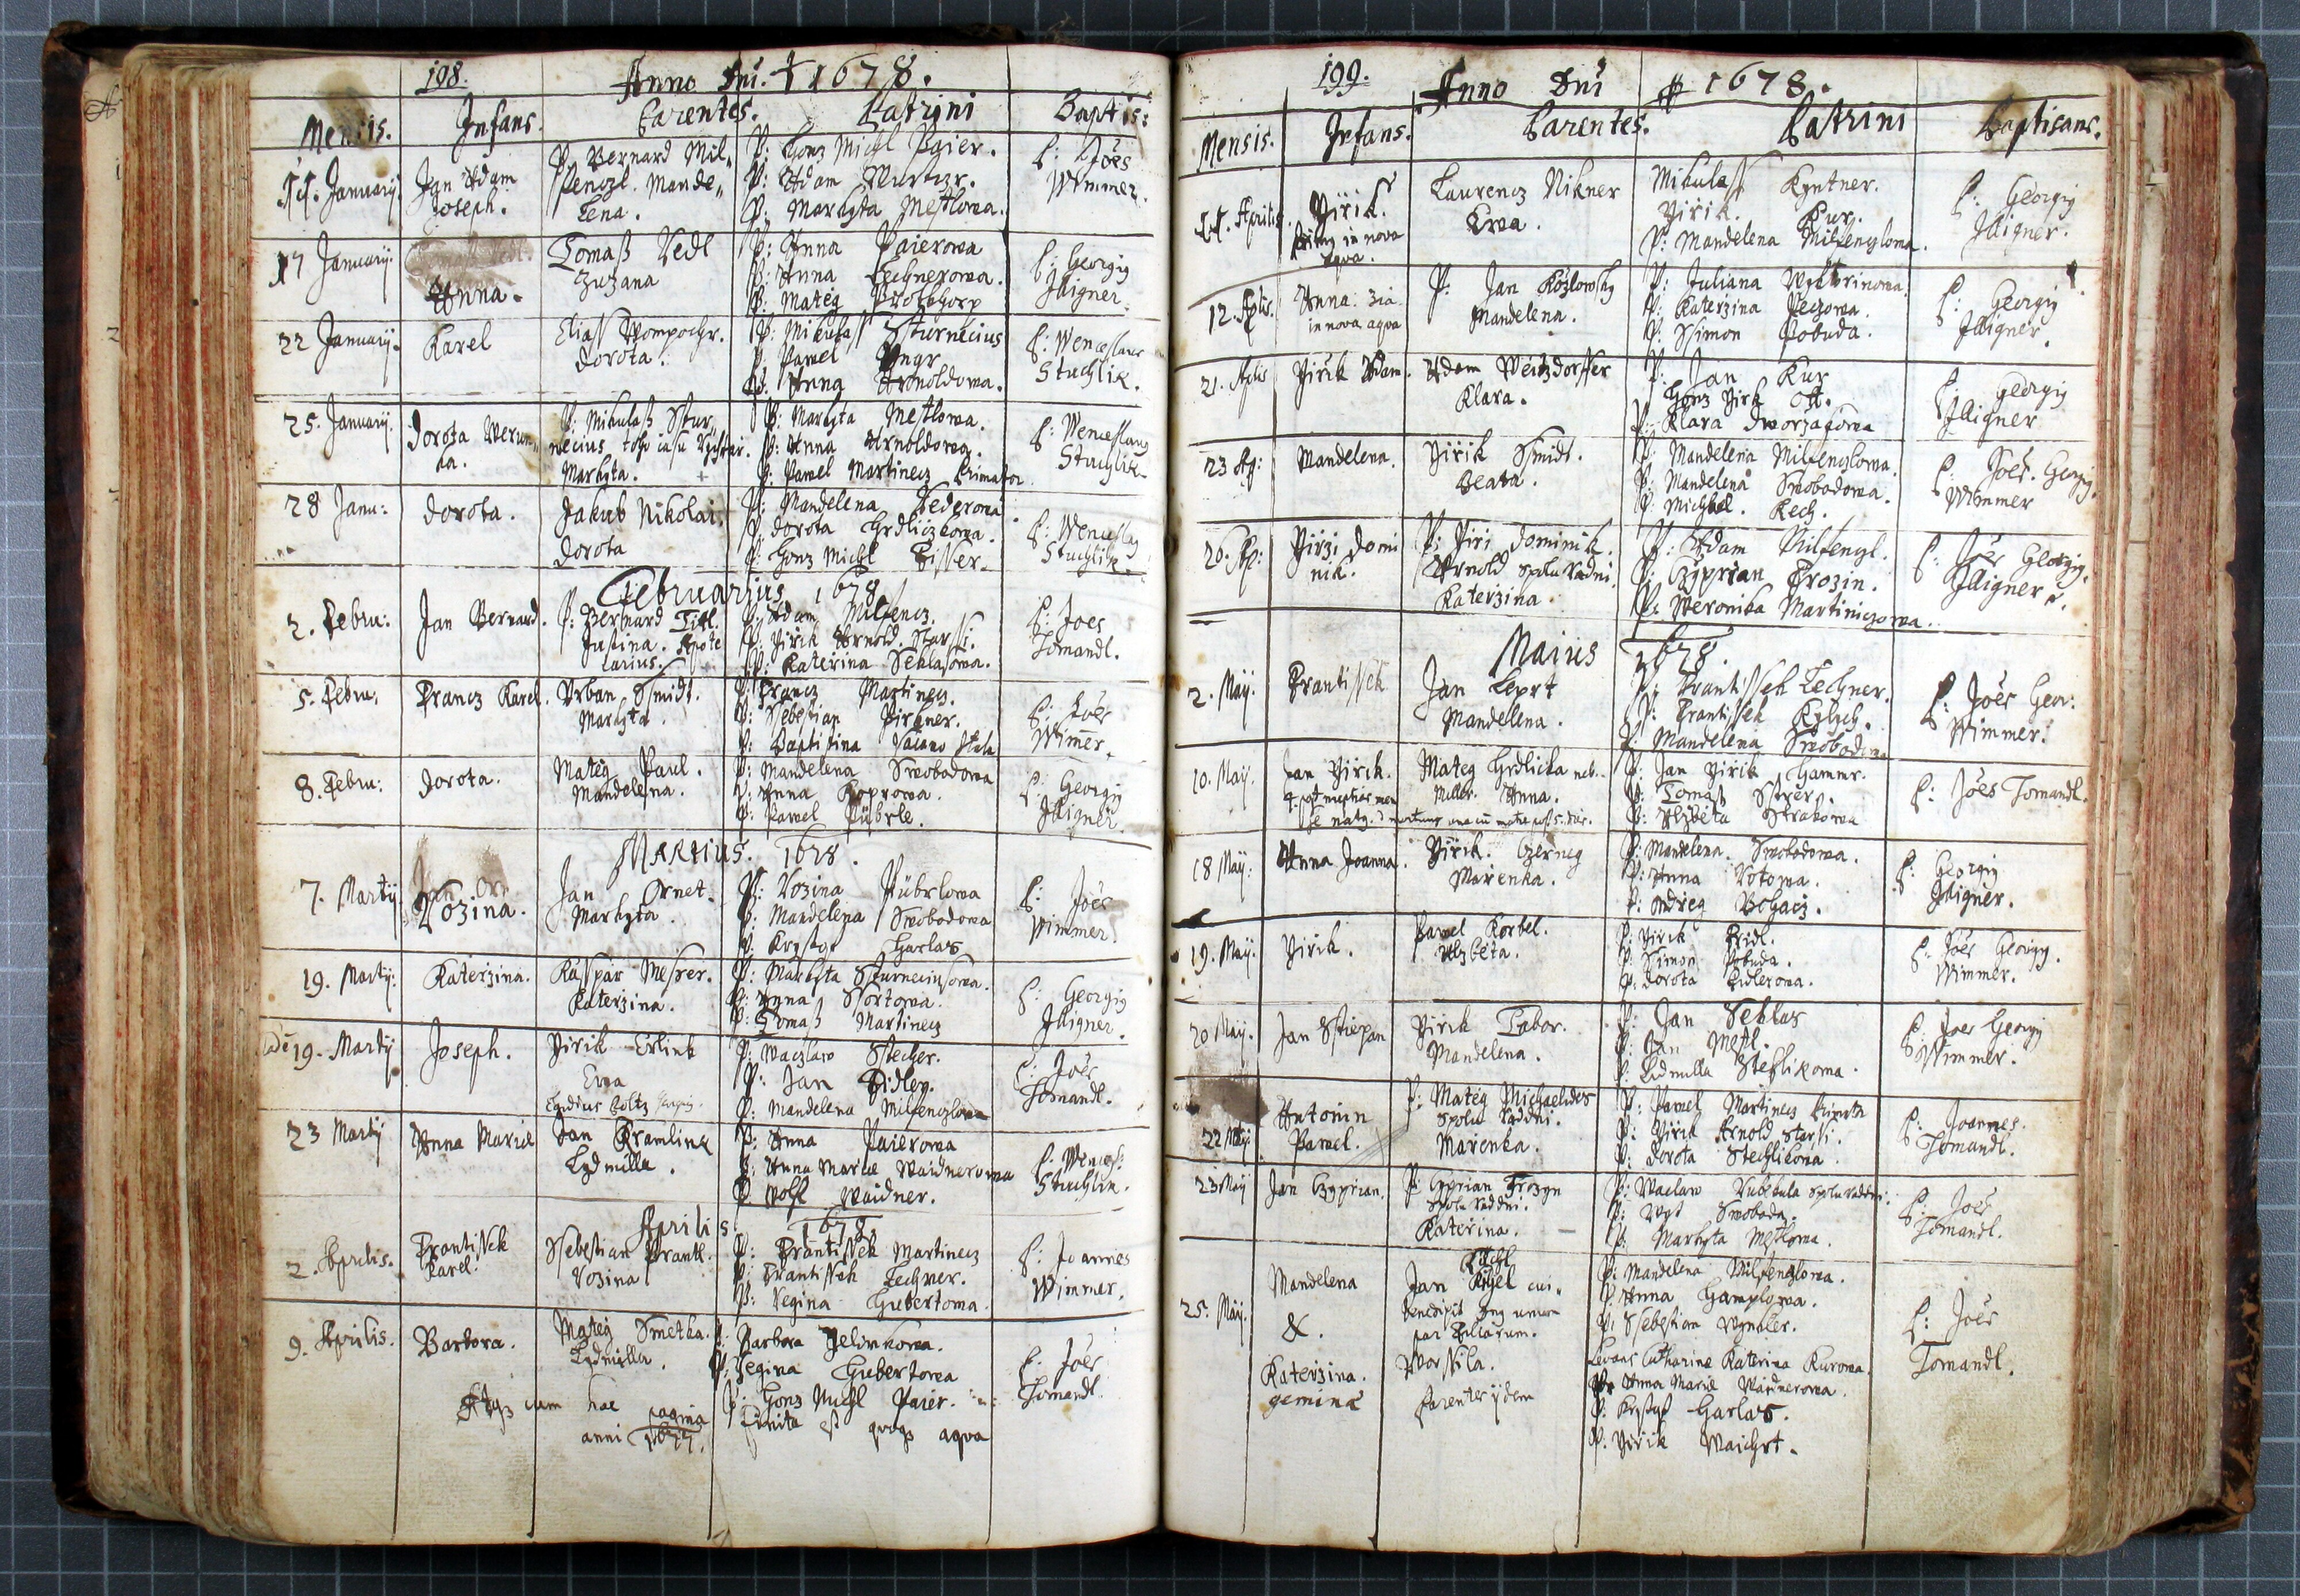 198. Anno Dni. 1678.
Mensis. Infans. Parentes. Patrini Baptis:
11. January. Jan Adam Joseph.
P. Bernard Mil„
fenczl. Mande„
lena.
P: Honz Michl Paier.
P: Adam Wurtczr.
P: Markyta Mestlowa.
P: Joes
Wimmer.
17 January. Anna.
Tomass Vedl
Zuzana
P: Anna Paierowa
P: Anna Lechnerowa.
P: Mateg
P: Georgiy
Illigner.
22 January. Karel
Eliass
Dorota.
P: Mikulass Sturnecius
P: Pawel Ungr
P: Anna Arnoldowa.
P: Wenceslaus
Stuchlik.
25. January. Dorota Verun„
ka.
P: Mikulass Stur„
necius toho času
Markyta.
P: Markyta Mestlowa.
P: Anna Arnoldowa.
P: Pawel Martinecz Primator
P: Wenceslaus
Stuchlik
28 Janu: Dorota.
Jakub Nikolai.
Dorota
P: Mandelena Federowa
P: Dorota Hrdliczkowa.
P: Honz Michl Fisser.
P: Wenceslaus
Stuchlik.
Februarius. 1678
2. Febru: Jan Bernard.
P: Bernard Titl.
Justina. Apote
carius.
P: Adam Milfencz.
P: Yirik Arnold. Starssi.
P: Katerina Seklasowa.
P: Joes
Tomandl.
5. Febru. Francz Karel.
Urban Smidt.
Markyta.
P: Francz Martinecz.
P: Sebestian Pirkner.
P: Baptistina
P: Joes
Wimer.
8. Febru: Dorota.
Mateg Paul.
Mandelena.
P: Mandelena Swobodowa
P: Anna Koprowa.
P: Pawel Pübrle.
P: Georgiy
Illigner.
Martius. 1678.
7. Marty Rozina.
Jan Ornet.
Markyta.
P: Rozina Pübrlowa
P: Mandelena Swobodowa
P: Krystof Harlas
P: Joes
Wimmer
19. Marty: Katerzina.
Kasspar Messer.
Katerzina.
P: Markyta Sturneciusowa.
P: Anna Sortowa.
P: Tomass Martinecz
P: Georgiy
Illigner.
19. Marty Joseph.
Yirik Erlink
Ewa
P: Waczlaw Stecher.
P: Jan Fidler.
P: Mandelena Milfenczlowa
P: Joes
Tomandl.
23 Marty Anna Marie
Jan Kramling
Lydmilla.
P: Anna Paierowa
P: Anna Marie Waidnerowa
P: Wolf Waidner.
P: Wences:
Stuchlik.
Aprilis 1678
2. Aprilis. Frantissek
Karel.
Ssebestian Frantl.
Rozina
P: Frantissek Martinecz
P: Frantissek Lechner.
P: Regina Hubertowa.
P: Joannes
Wimmer.
9. Aprilis. Barbora.
Mateg Smetka.
Lydmilla.
P: Barbora Yelinkowa.
P: Regina Hubertowa
P: Honz Michl Paier.
P: Joes
Tomandl.
Atqz cum hac pagina finita est quoqz aqua
anni 1677.
199. Anno Dni 1678.
Mensis. Infans. Parentes. Patrini Baptisans.
11. Aprilis. Yirik.
in nova
aqva.
Laurencz Nikner
Ewa.
Mikulass Kyntner.
Yirik. Kur.
P: Mandelena Milfenczlowa.
P: Georgiy
Illigner.
12. Aplis. Anna
in nova aqva
P: Jan Kozlowsky
Mandelena.
P: Juliana
P: Katerzina Peczowa.
P: Ssimon Pobuda.
P: Georgiy
Illigner.
21. Aplis Yirik Adam.
Adam Weitzdorffer
Klara.
P: Jan Kur
Honz Yirk Ott.
P: Klara Dworzakowa
P: Georgiy
Illigner
23 Ap: Mandelena.
Yirik Smidt.
Beata.
P: Mandelena Milfenczlowa.
P: Mandelena Swobodowa.
P: Michael. Kech.
P: Joes. Georgiy.
Wimmer
26. Ap: Yirzi Domi
nik.
P: Yiri Dominik.
Arnold spolu Radni.
Katerzina.
P: Adam Milfenczl.
P: Cyprian Trozin.
P: Weronika Martiniczowa.
P: Joes Georgiy.
Illigner
Maius 1678.
2. May. Frantissek
Jan Leprt
Mandelena.
P: Frantissek Lechner.
P: Frantissek
P: Mandelena Swobodowa
P: Joes Geor:
Wimmer.
10. May. Jan Yirik.
Mateg Hrdlicka neb
Miller. Anna.
P: Jan Yirik Hammr.
P: Tomass
P: Alzbeta Strakowa
P: Joes Tomandl.
18 May: Anna Joanna.
Yirik. Czerneg
Marenka.
P: Mandelena. Swobodowa.
P: Anna Rotowa.
P: Ondreg Bohacz.
P: Georgiy
Illigner.
19. May: Yirik.
Pawel Korbel.
Alzbeta.
P: Yirik Fridl.
P: Simon Pobuda.
P: Dorota Fidlerowa.
P: Joes Georgiy.
Wimmer.
20 May. Jan Stiepan
Yirik Tabor.
Mandelena.
P: Jan Seklas
P: Jan Mestl.
P: Lidmilla Steflikowa.
P: Joes Georgiy
Wimmer.
22 May. Antonin
Pawel.
P: Mateg Michaelides
spolu Raddni.
Marenka.
P: Pawel Martinecz Primator
P: Yirik Arnold Starssi.
P: Dorota Stechlikowa.
P: Joannes.
Tomandl.
23 May Jan Czyprian.
P: Cyprian Trozyn
spolu Raddni.
Katerina.
P: Waclaw Kubikula spolu Raddni.
P: Swoboda.
P: Markyta Mestlowa.
P: Joes
Tomandl.
25. May. Mandelena
&.
Katerzina.
geminae
Jan cui.
benedixit
par filiarum.
Worssila.
Parentes ijdem
P: Mandelena Milfenczlowa.
P: Anna Hamplowa.
P: Ssebestian
Levans Catharinae Katerina Kurowa.
P: Anna Marie Waidnerowa.
P: Krystof Harlas.
P: Yirik Waichrt.
P: Joes
Tomandl.